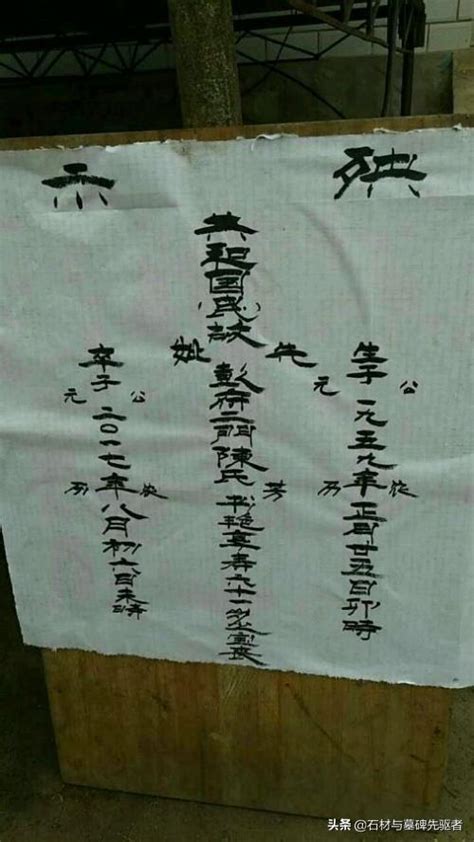 殃示
生于公元一九五九年农历正月廿五日卯時
共和国(民)故先妣彭府二門陳氏享寿六十一岁
卒于公元二〇一七年农历八月初六日未時
头条 @石材与墓碑先驱者